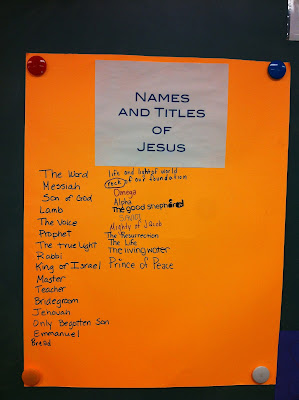 NAMES
AND TITLES
OF
JESUS
The Word
Messiah
Son of God
Lamb
The Voice
Prophet
The true light
Rabbi
King of Israel
Master
Teacher
Bridegroom
Jehovah
Only Begotten Son
Emmanuel
Bread
life and light of world
rock of our foundation
Omega
Alpha
The good shephered
Mighty of Jacob
The Resurrection
The Life
The living water
Prince of Peace